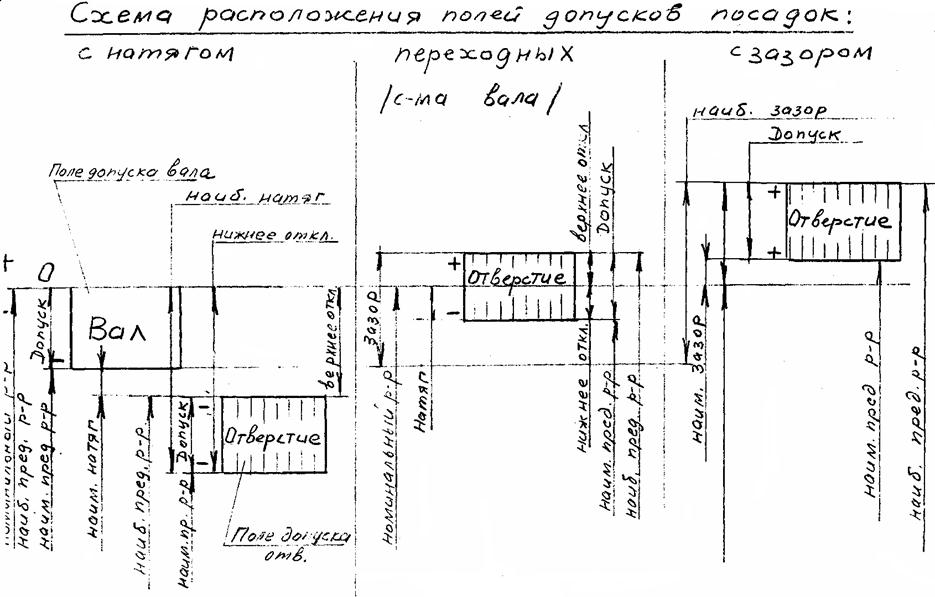 Схема расположения полей допусков посадок:
с натягом
переходных
с зазором
/с-ма вала/
наиб. зазор
Допуск
Поле допуска вала
наиб. натяг
нижнее откл.
верхнее откл.
Допуск
+
Отверстие
+
+
0
-
Допуск
Вал
-
верхнее откл.
+
Отверстие
-
Зазор
номинальный р-р
Натяг
нижнее откл.
наим. пред. р-р
наиб. пред. р-р
наим. зазор
наим. пред. р-р
наиб. пред. р-р
номинальный р-р
наиб. пред. р-р
наим. пред. р-р
наим. натяг
наиб. пред. р-р
Допуск
наим. пр. р-р
-
Отверстие
-
Поле допуска
отв.